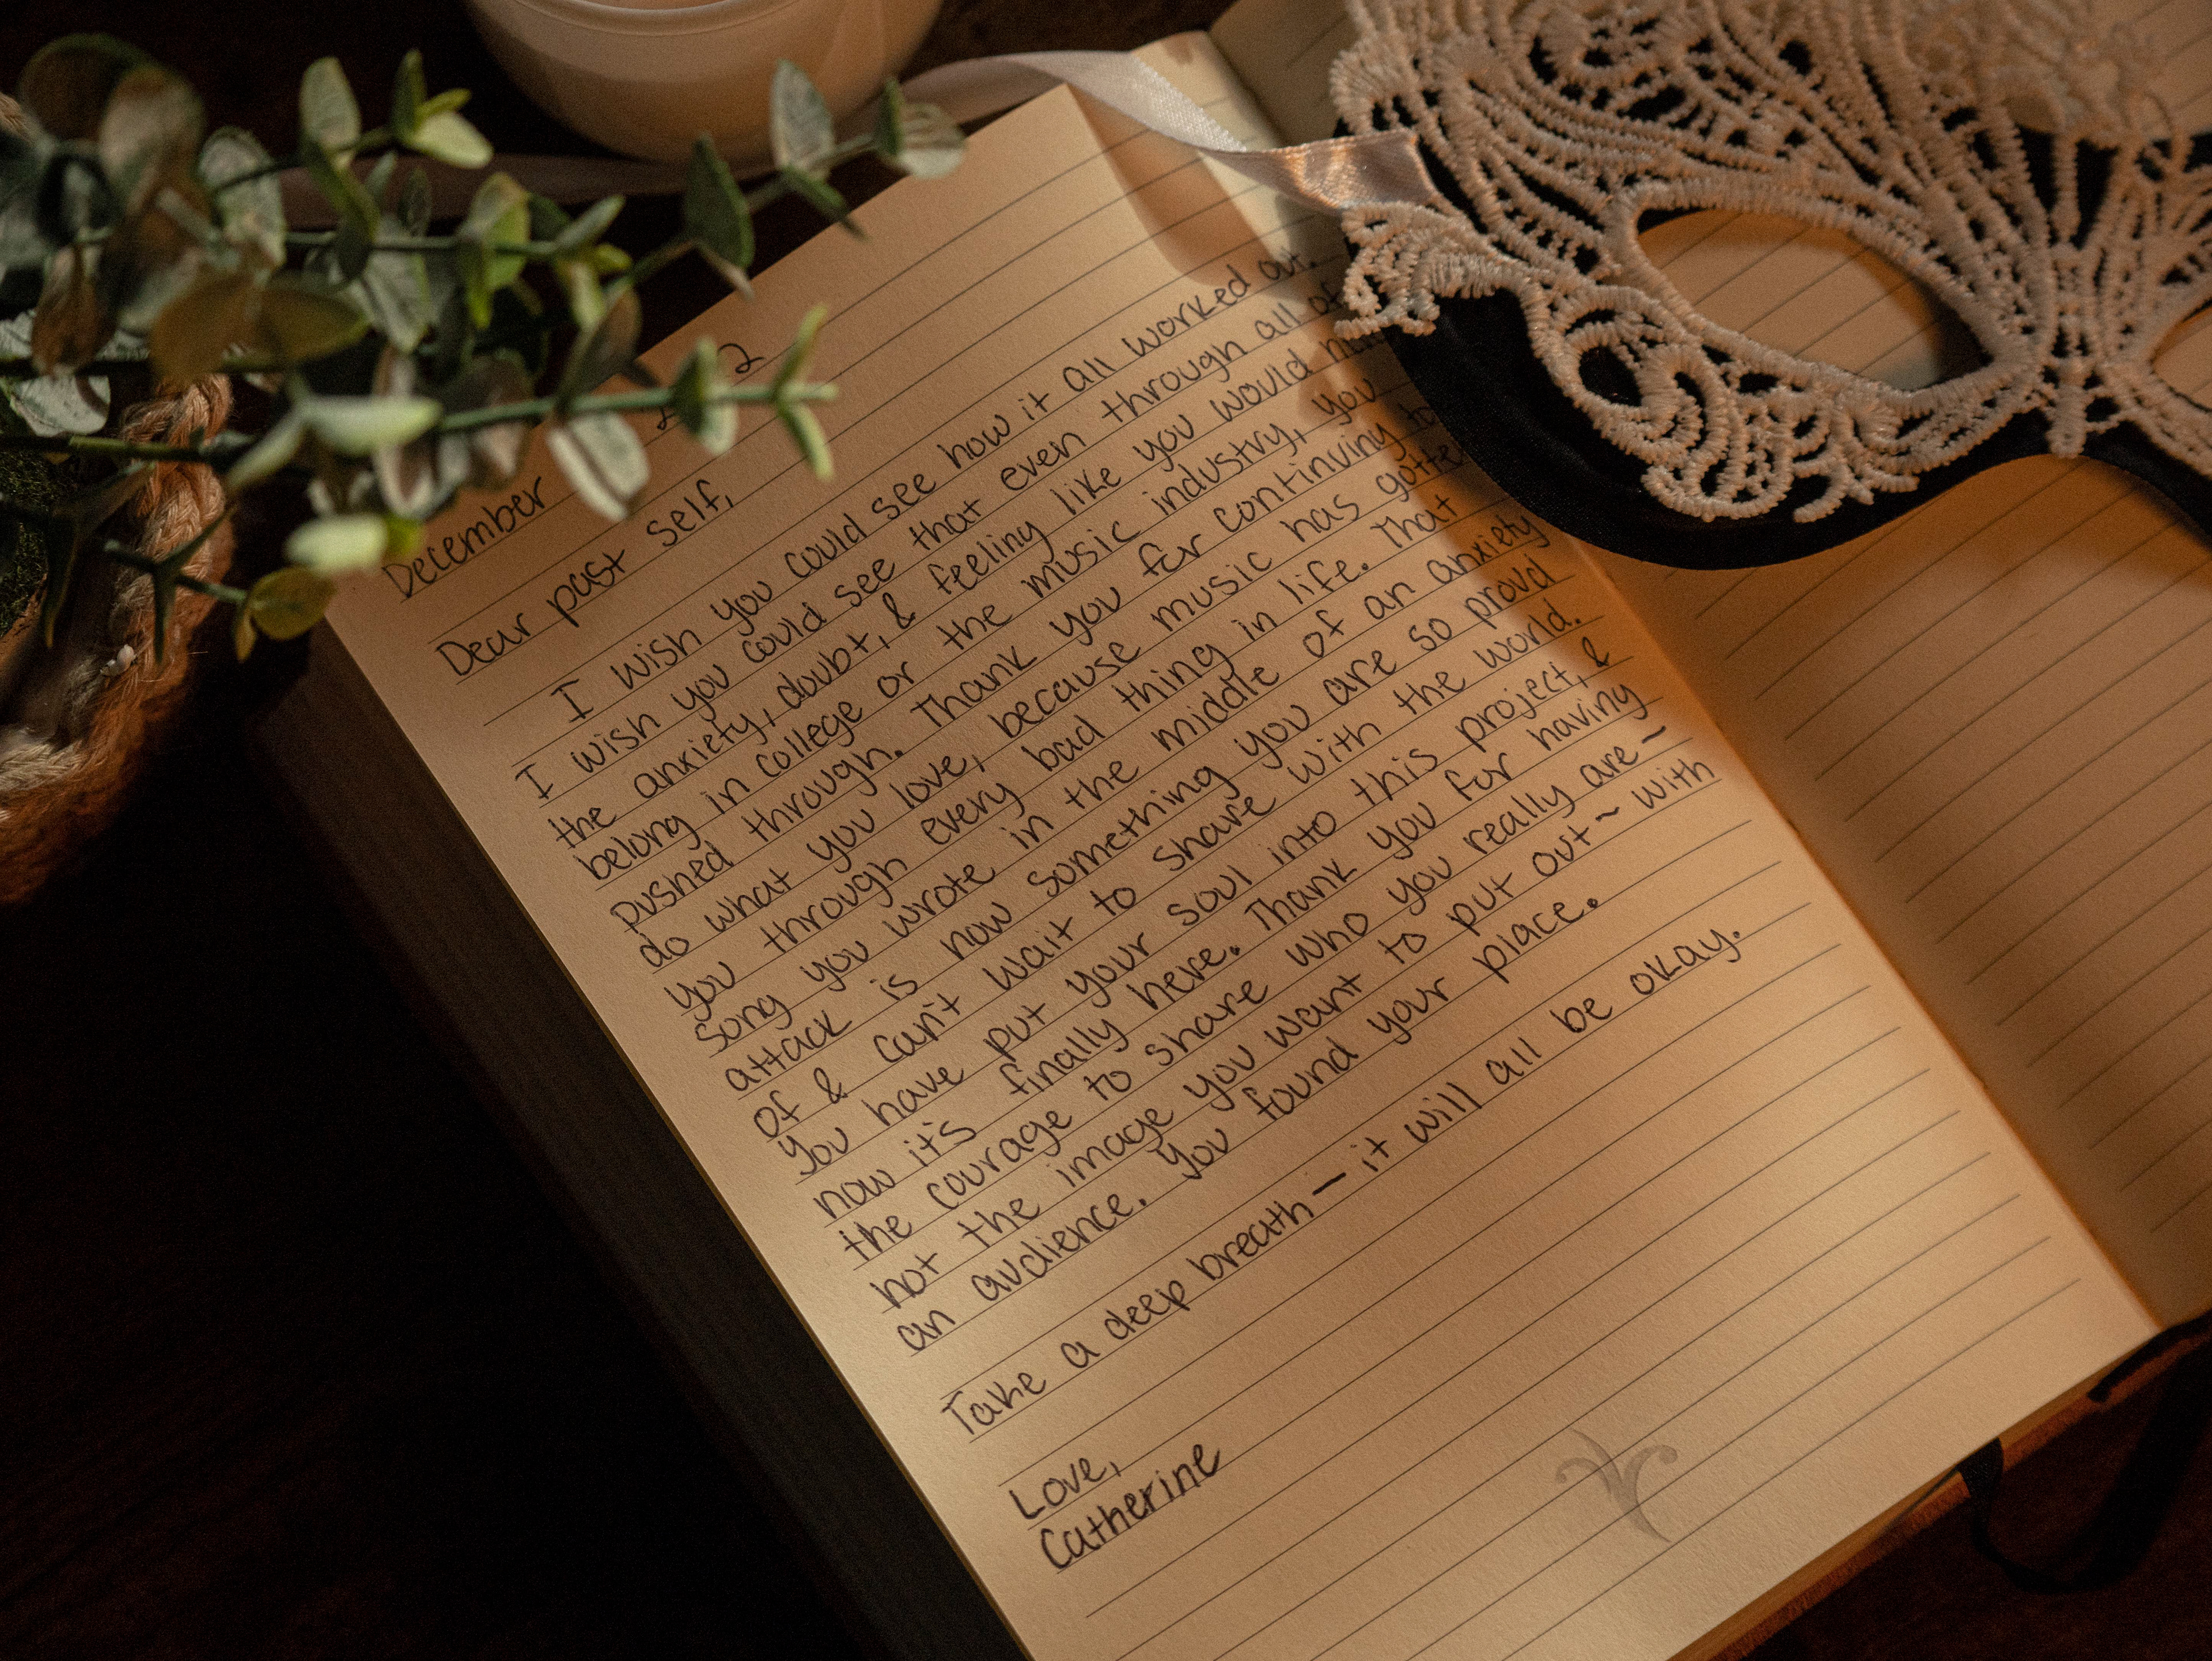 December 2
Dear past self,
I wish you could see how it all worked out.
I wish you could see that even through all of
the anxiety, doubt, & feeling like you would
belong in college or the music industry, you
pushed through. Thank you for continuing to
do what you love, because music has gotten
you through every bad thing in life. That
song you wrote in the middle of an anxiety
attack is now something you are so proud
of & can't wait to share with the world.
You have put your soul into this project, &
now it's finally here. Thank you for having
the courage to share who you really are ~
not the image you want to put out ~ with
an audience. You found your place.
Take a deep breath — it will all be okay.
Love,
Catherine